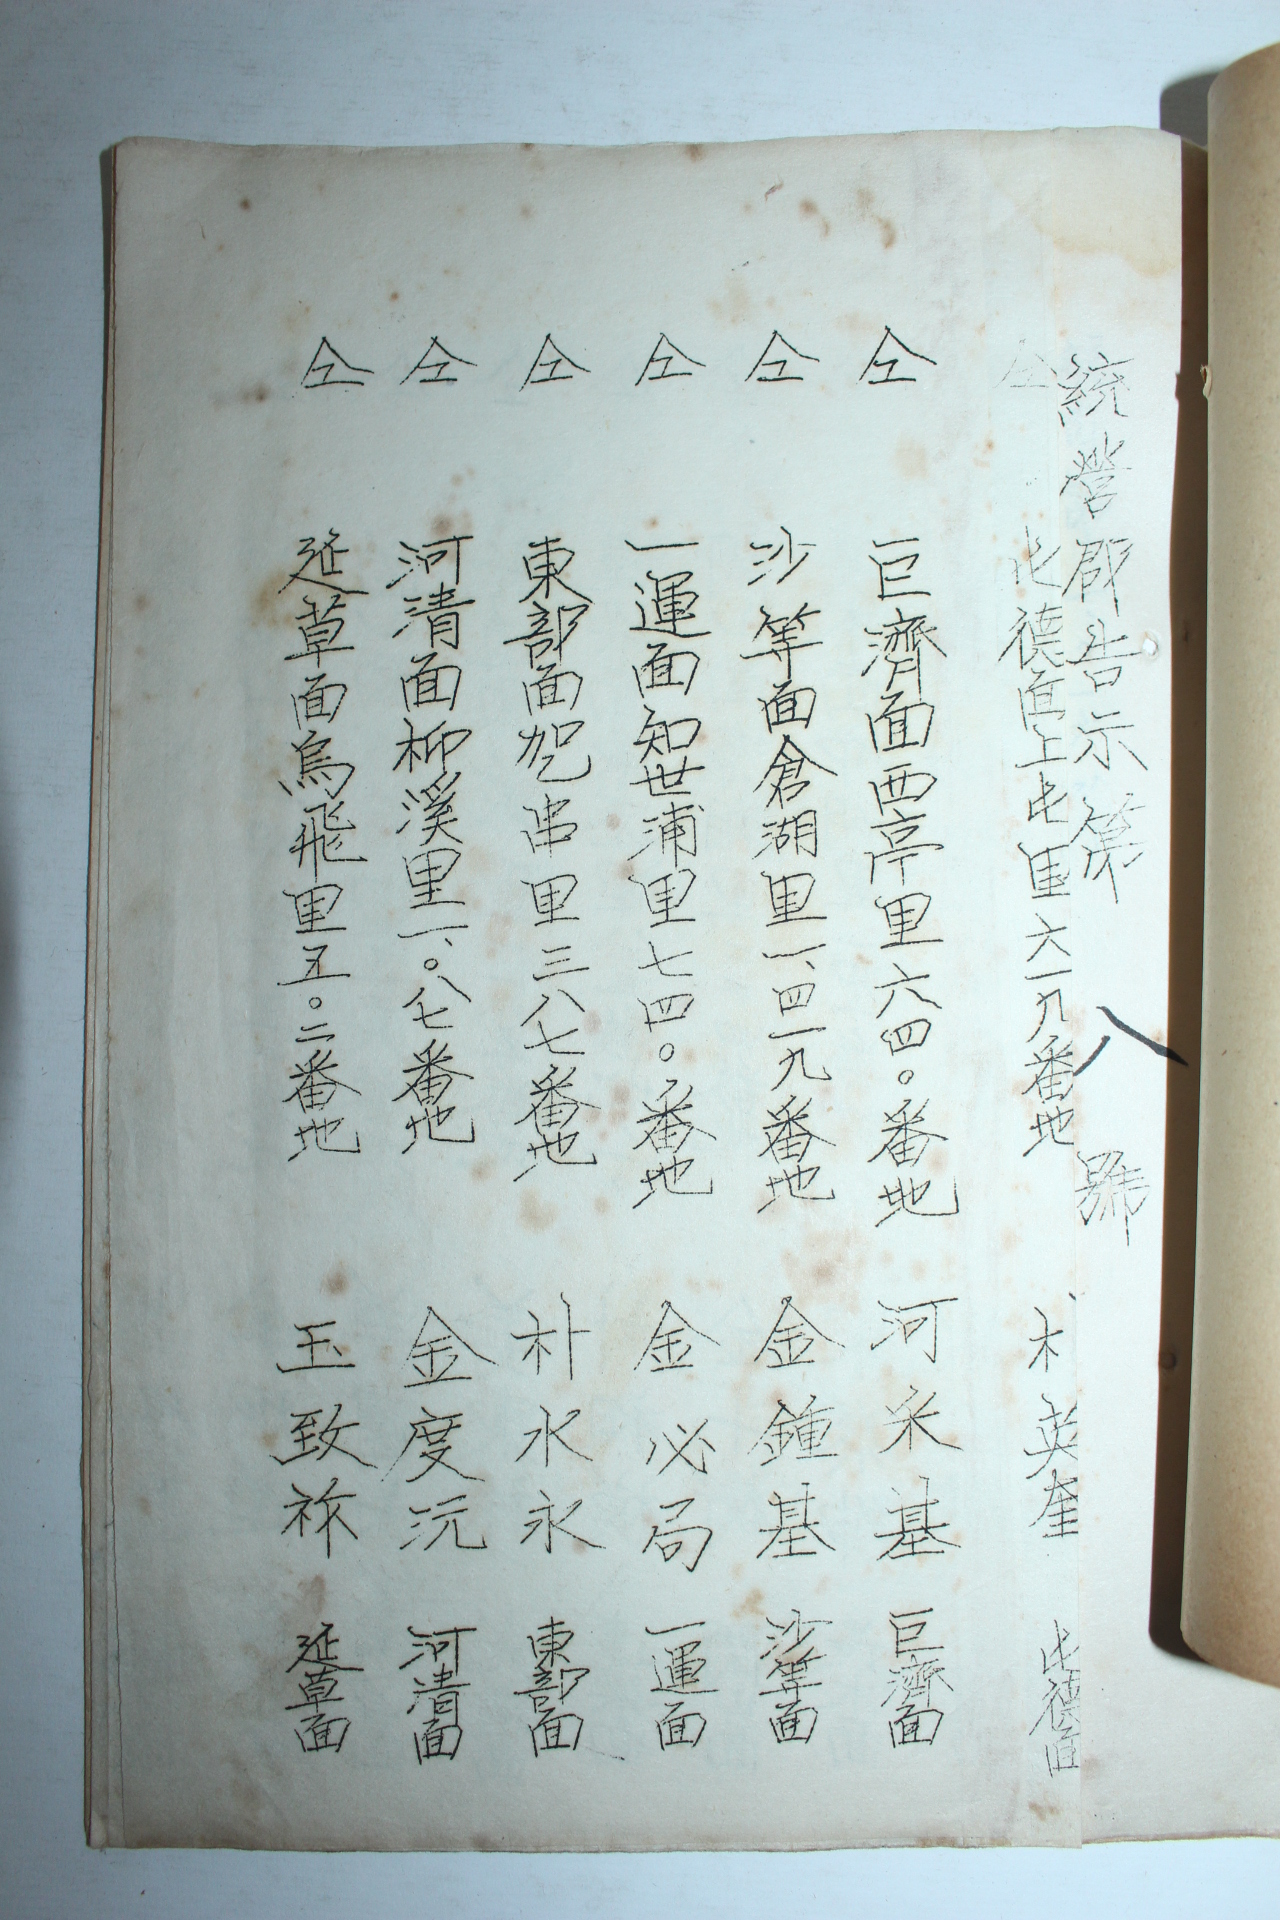 統營郡告示第八號
仝 屯德面上屯里六一九番地 朴英奎 屯德面
仝 巨濟面西亭里六四〇番地 河采基 巨濟面
仝 沙等面倉湖里一、四一九番地 金鍾基 沙等面
仝 一運面知世浦里七四〇番地 金必局 一運面
仝 東部面乫串里三八七番地 朴水永 東部面
仝 河清面柳溪里一、〇八七番地 金度沅 河清面
仝 延草面烏飛里五〇二番地 玉致 延草面